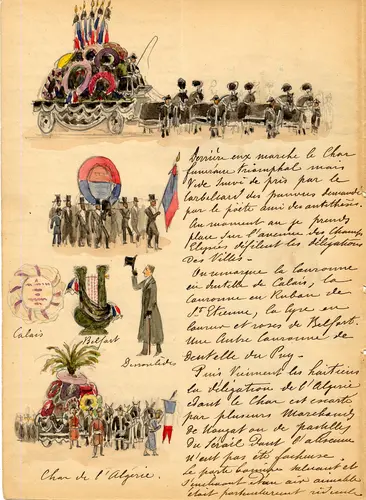 Derrière eux marche le Char
funéraire triomphal mais
Vide suivi de près par le
Corbillard des pauvres demandé
par le poëte ami des antithèses.
Au moment où je prends
place sur l'avenue des Champs
Elysées défilent les délégations
des Villes.
On remarque la Couronne
en dentelle de Calais, la
Couronne en Ruban de
St Etienne, la Lyre en
et roses de Belfort.
Une autre Couronne de
Dentelle du Puy.
Puis Viennent les haïtiens
la délégation de l'Algérie
dont le Char est escorté
par plusieurs Marchands
de Nougat ou de pastilles
du Sérail dont l'
n'eut pas été facheuse.
Le porte
s' d'un air aimable
était particulièrement ridicule
Calais
Belfort
Deroulèdes
Char de l'Algérie.